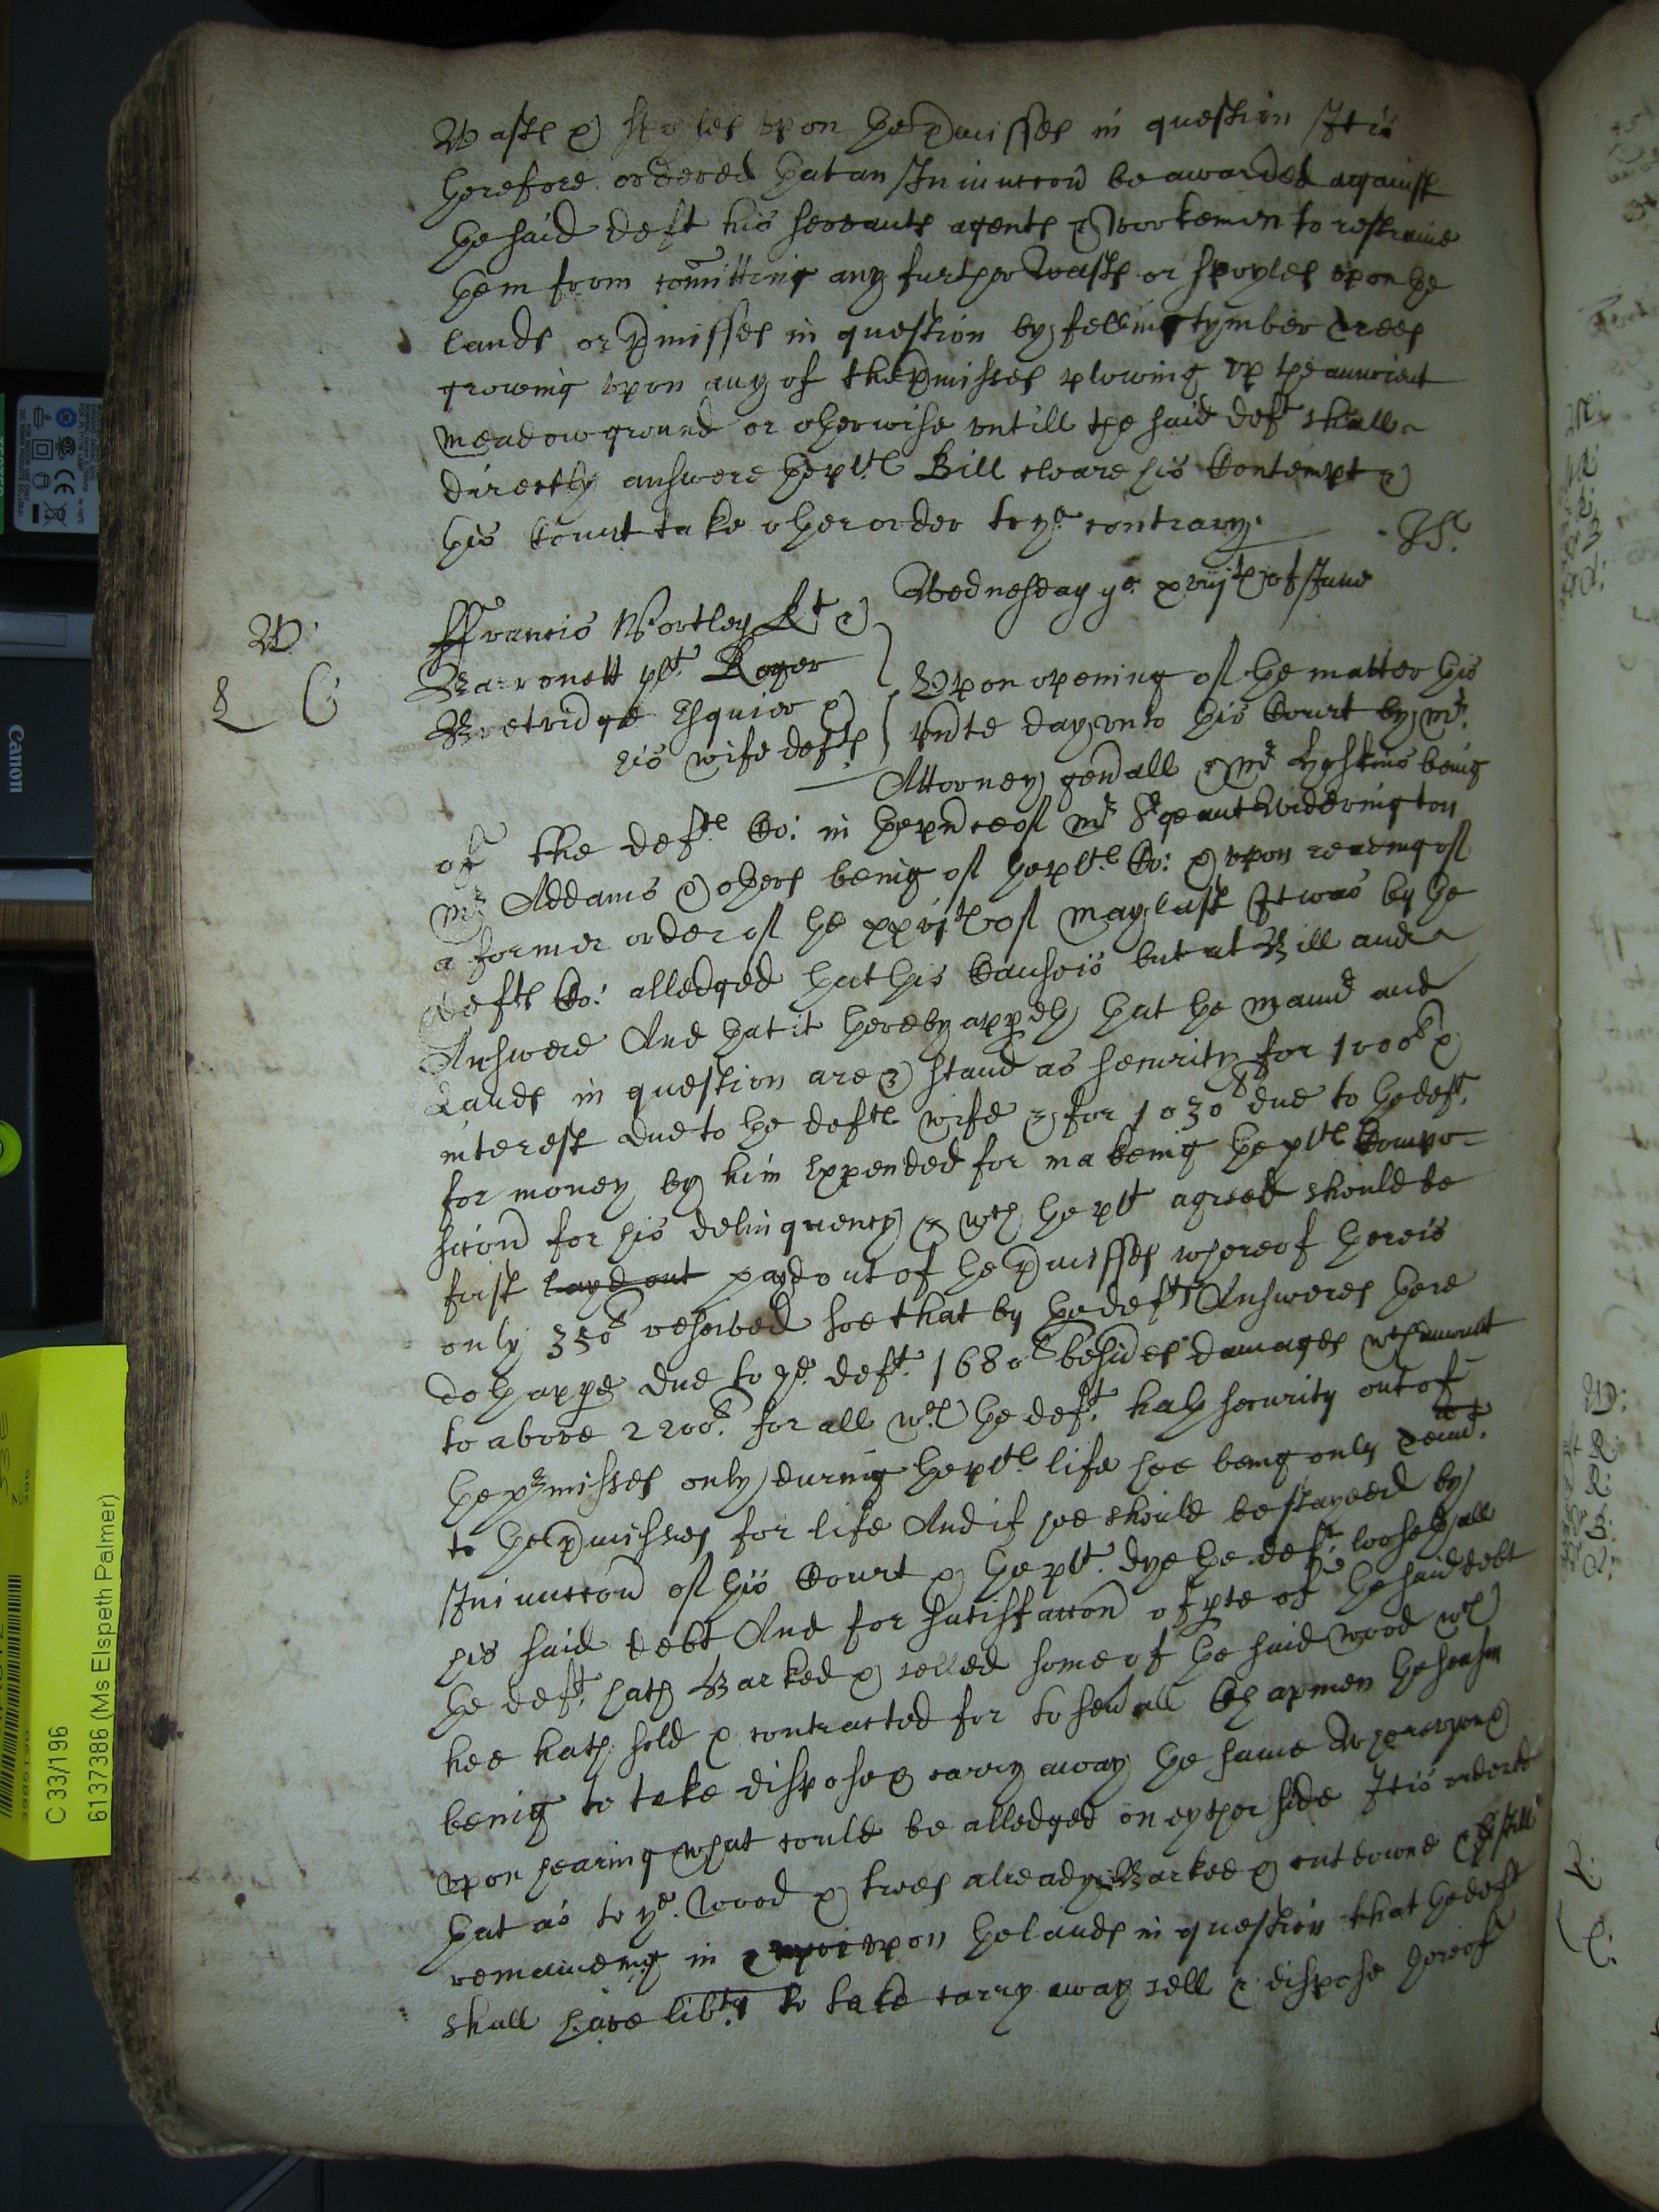 Wast & spoyles vpon the pmisses in question It is
therefore ordered that an Iniuncon be awarded against
the said deft his servants agents & workemen to restraine
them from comitting any further wasts or spoyles vpon the
lands or pmisses in question by felling tymber trees
growing vpon any of the pmisses plowing vp the auncient
meadow ground or otherwise vntill the said deft shall
directly answere the plts Bill cleare his Contempt &
this Court take other order to ye contrary.
Wednesday ye xviijth of June
W
L C
ffrancis Wortley Kt &
Barronett plt Roger
Bretridge Esquier &
his wife defts
Vpon opening of the matter this
pnte day vnto this Court by Mr
Attorney genall & Mr Hoskins being
of the defts Co: in the pnce of Mr Sergeant Widdrington
Mr Addams & others being of the plts Co: & vpon reading of
a former order of the xxvjth of May last It was by the
defts Co: alledged that this Cause is but at Bill and
Answere And that it thereby appeth that the Mannor and
Lands in question are & stand as security for 1000l &
interest due to the defts wife & for 1030l due to the deft
for money by him Expended for makeing the plts Compo-
sicon for his delinquency & wch the plt agreed should be
first layd out payd out of the pmisses whereof there is
only 350l reserved soe that by the defts Answeres there
doth appe due to ye deft 1680l besides damages wch amount
to above 2200l for all wch the deft hath security out of
the pmisses only during the plts life hee being only tent
to the pmisses for life And if hee should be stayed by
Iniuncon of this Court & the plt dye the deft looseth all
his said debt And for satisfaccon of pte of the said debt
the deft hath Barked & felled some of the said wood wch
hee hath sold & contracted for to sevall Chapmen the season
being to take dispose & carry away the same Wherevpon &
vpon hearing what could be alledged on eyther side It is ordered
that as to ye wood & trees already Barked & cut downe & still
remaineing in & vpon the lands in question that the deft
shall have libty to take carry away sell & dispose thereof
Canon
C 33/196
6137386 (Ms Elspeth Palmer)